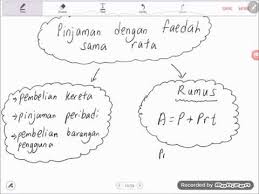 Pinjaman dengan faedah
sama rata
→ pembelian kereta
→ pinjaman peribadi
→ pembelian barangan
pengguna
Rumus
A = P + Prt
P